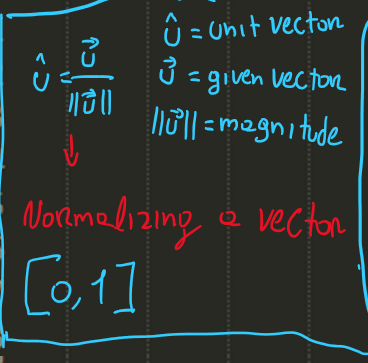 û = u⃗ / ||u⃗||
û = unit vector
u⃗ = given vector
||u⃗|| = magnitude
↓
Normalizing a vector
[0,1]